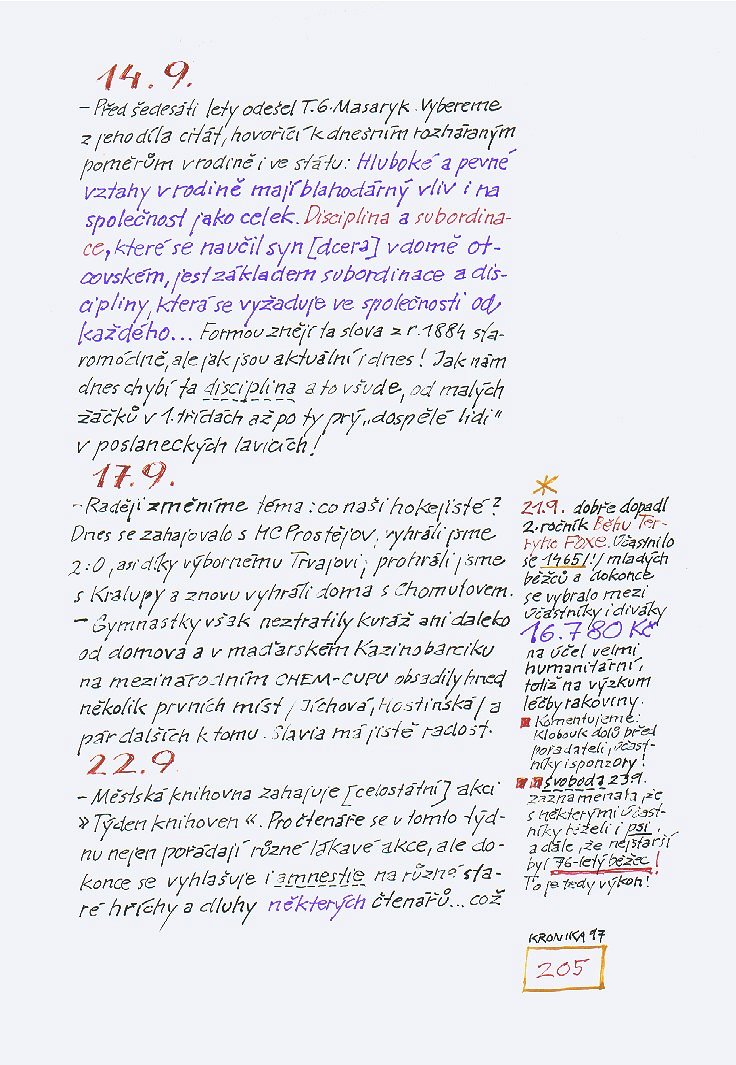 14.9.
– Před šedesáti lety odešel T.G.Masaryk. Vybereme
z jeho díla citát, hovořící k dnešním rozháraným
poměrům v rodině i ve státu: Hluboké a pevné
vztahy v rodině mají blahodárný vliv i na
společnost jako celek. Disciplina a subordina-
ce, které se naučil syn [dcera] v domě ot-
covském, jest základem subordinace a dis-
cipliny, která se vyžaduje ve společnosti od
každého... Formou znějí ta slova z r. 1884 sta-
romódně, ale jak jsou aktuální i dnes! Jak nám
dnes chybí ta disciplina a to všude, od malých
žáčků v 1. třídách až po ty prý „dospělé lidi"
v poslaneckých lavicích!
17.9.
– Raději změníme téma: co naši hokejisté?
Dnes se zahajovalo s HC Prostějov, vyhráli jsme
2:0, asi díky výbornému Trvajovi; prohráli jsme
s Kralupy a znovu vyhráli doma s Chomutovem.
– Gymnastky však neztratily kuráž ani daleko
od domova a v maďarském Kazinobarciku
na mezinárodním CHEM-CUPU obsadily hned
několik prvních míst / Jíchová, Hostinská / a
pár dalších k tomu. Slavia má jistě radost.
22.9.
– Městská knihovna zahajuje [celostátní] akci
» Týden knihoven «. Pro čtenáře se v tomto týd-
nu nejen pořádají různé lákavé akce, ale do-
konce se vyhlašuje i amnestie na různé sta-
ré hříchy a dluhy některých čtenářů... což
*
21.9. dobře dopadl
2. ročník Běhu Ter-
ryho Foxe. Účastnilo
se 1465 /!/ mladých
běžců a dokonce
se vybralo mezi
účastníky i diváky
16.780 Kč
na účel velmi
humanitární,
totiž na výzkum
léčby rakoviny.
Komentujeme:
Klobouk dolů před
pořadateli, účast-
níky i sponzory!
Svoboda 23.9.
zaznamenala, že
s některými účast-
níky běželi i psi
a dále, že nejstarší
byl 76-letý běžec!
To je tedy výkon!
KRONIKA 97
205